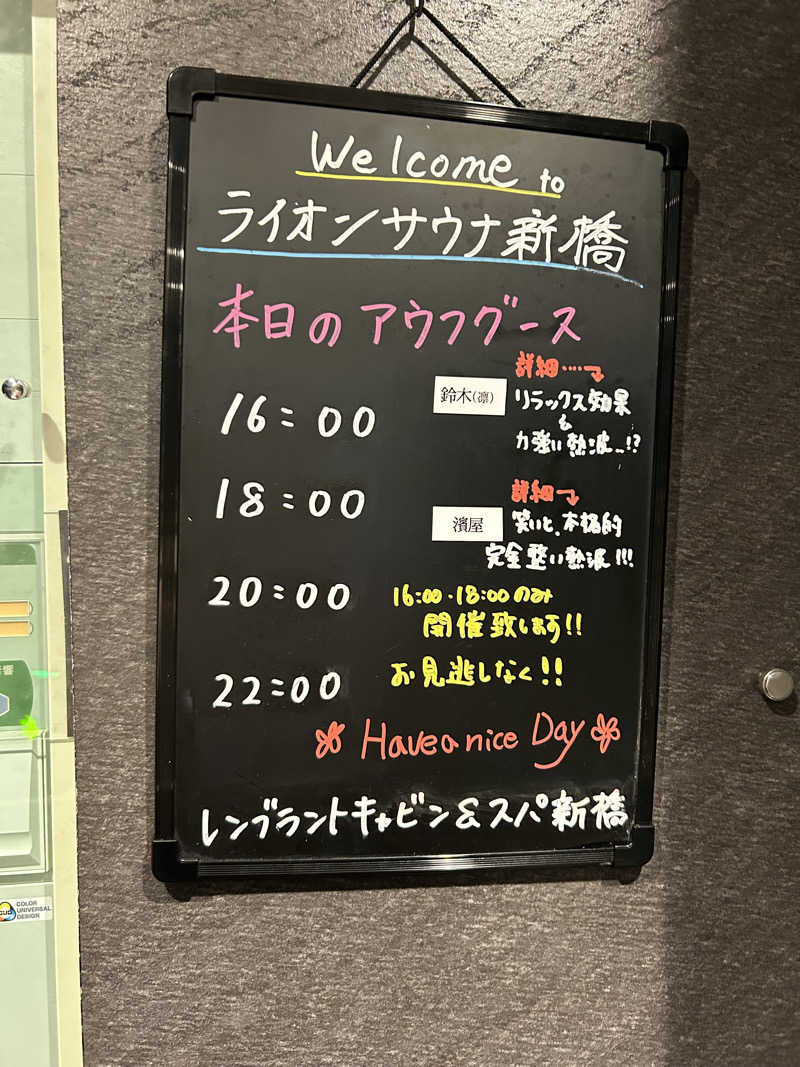 Welcome to
ライオンサウナ新橋
本日のアウフグース
16:00
鈴木(凛)
詳細‥‥↴
リラックス効果
&
力強い熱波...!?
18:00
濱屋
詳細→
笑いと、本格的
完全整い熱波!!!
20:00
16:00・18:00のみ
開催致します!!
22:00
お見逃しなく!!
Have a nice Day
レンブラントキャビン&スパ新橋
COLOR
UNIVERSAL
DESIGN